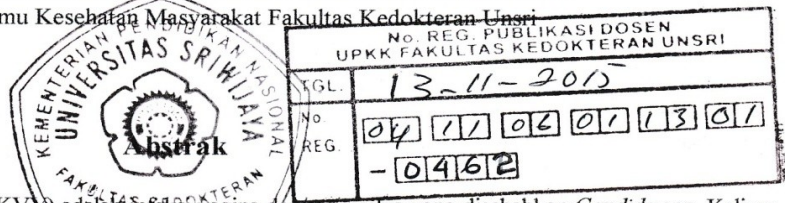 mu Kesehatan Masyarakat Fakultas Kedokteran Unsri
KEMENTERIAN PENDIDIKAN NASIONAL
UNIVERSITAS SRIWIJAYA
FAKULTAS KEDOKTERAN
No. REG. PUBLIKASI DOSEN
UPKK FAKULTAS KEDOKTERAN UNSRI
TGL. 13-11-2015
No. REG. 04 11 06 01 13 01
- 0462
Abstrak